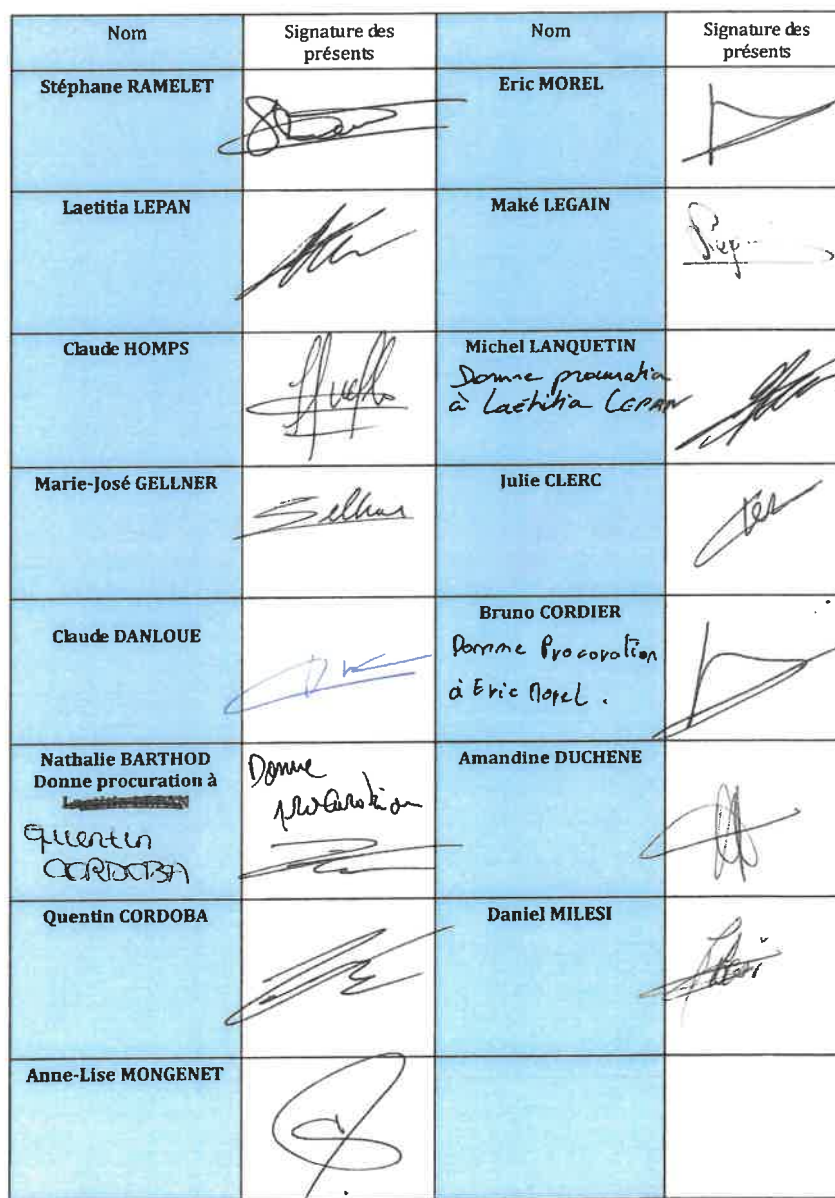 Nom
Signature des
présents
Nom
Signature des
présents
Stéphane RAMELET
Eric MOREL
Laetitia LEPAN
Maké LEGAIN
Claude HOMPS
Michel LANQUETIN
Donne procuration
à Laetitia LEPAN
Marie-José GELLNER
Julie CLERC
Claude DANLOUE
Bruno CORDIER
Donne Procuration
à Eric Morel.
Nathalie BARTHOD
Donne procuration à
Laetitia LEPAN
Quentin
CORDOBA
Donne
procuration
Amandine DUCHENE
Quentin CORDOBA
Daniel MILESI
Anne-Lise MONGENET